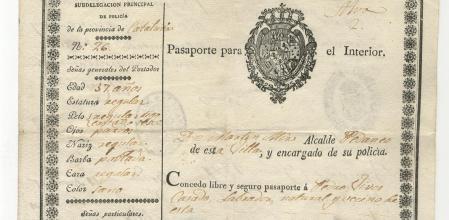 SUBDELEGACION PRINCIPAL
DE POLICÍA
de la provincia de Cataluña
N.º 26.
Señas generales del Portador.
Edad 37 años
Estatura regular
Pelo
Ojos pardos
Nariz regular
Barba poblada
Cara regular
Color sano
Señas particulares.
Pasaporte para el Interior.
D.n Martin Alcalde
de esta Villa, y encargado de su policía.
Concedo libre y seguro pasaporte á
Casado, Labrador, natural y vecino de
esta